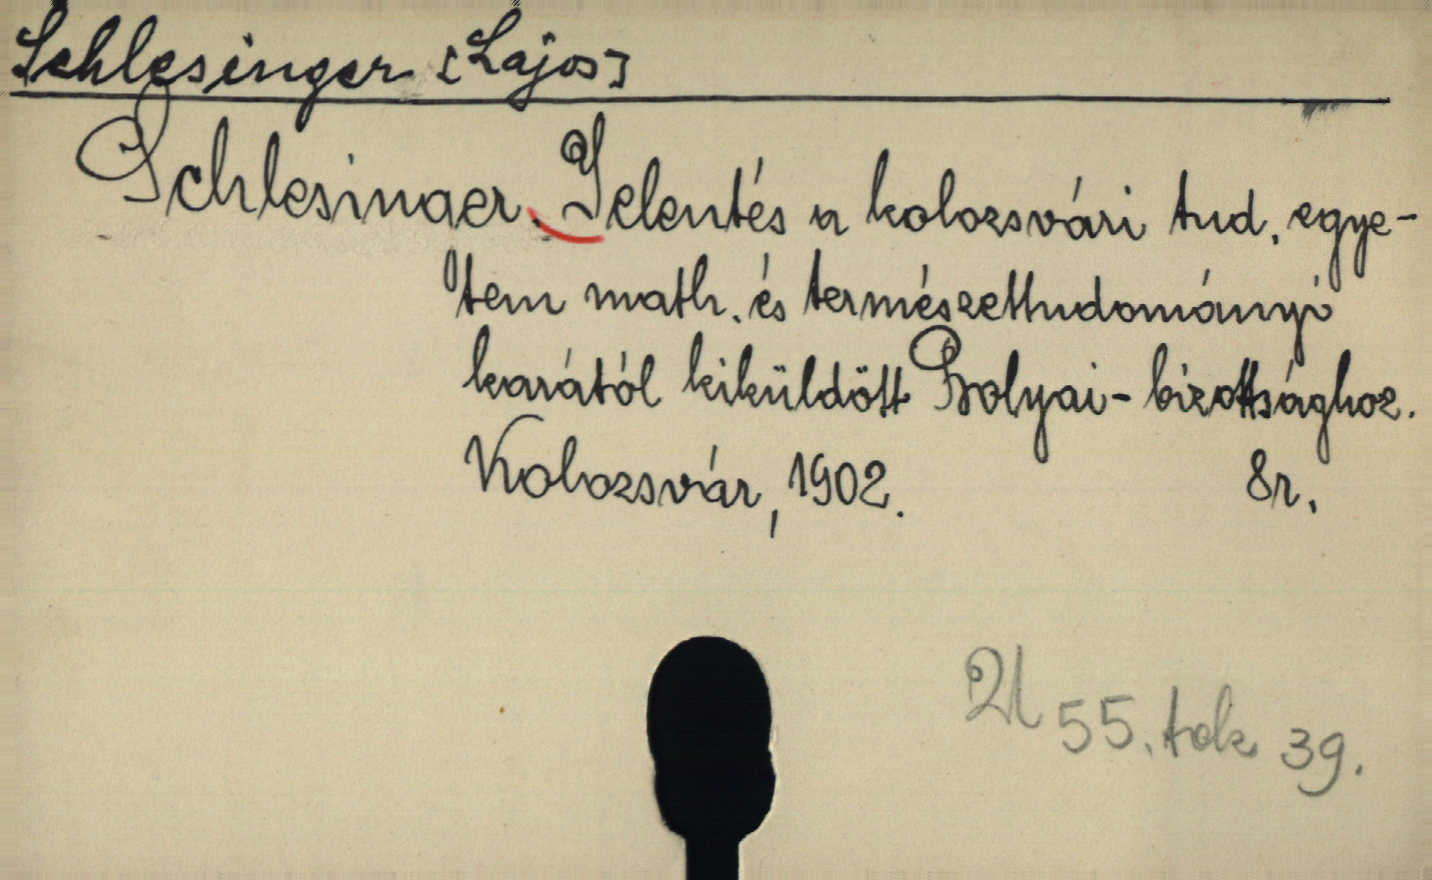 Schlesinger [Lajos]
Schlesinger. Jelentés a kolozsvári tud. egye-
tem math. és természettudományi
karától kiküldött Bolyai-bizottsághoz.
Kolozsvár, 1902. 8r.
55. tok 39.